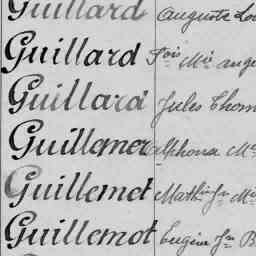 Guillard Auguste Lou
Guillard Fois Mie augu
Guillard Jules Thom
Guillemer alphonse Me
Guillemot Mathin Jn Mie
Guillemot Eugène Jn B